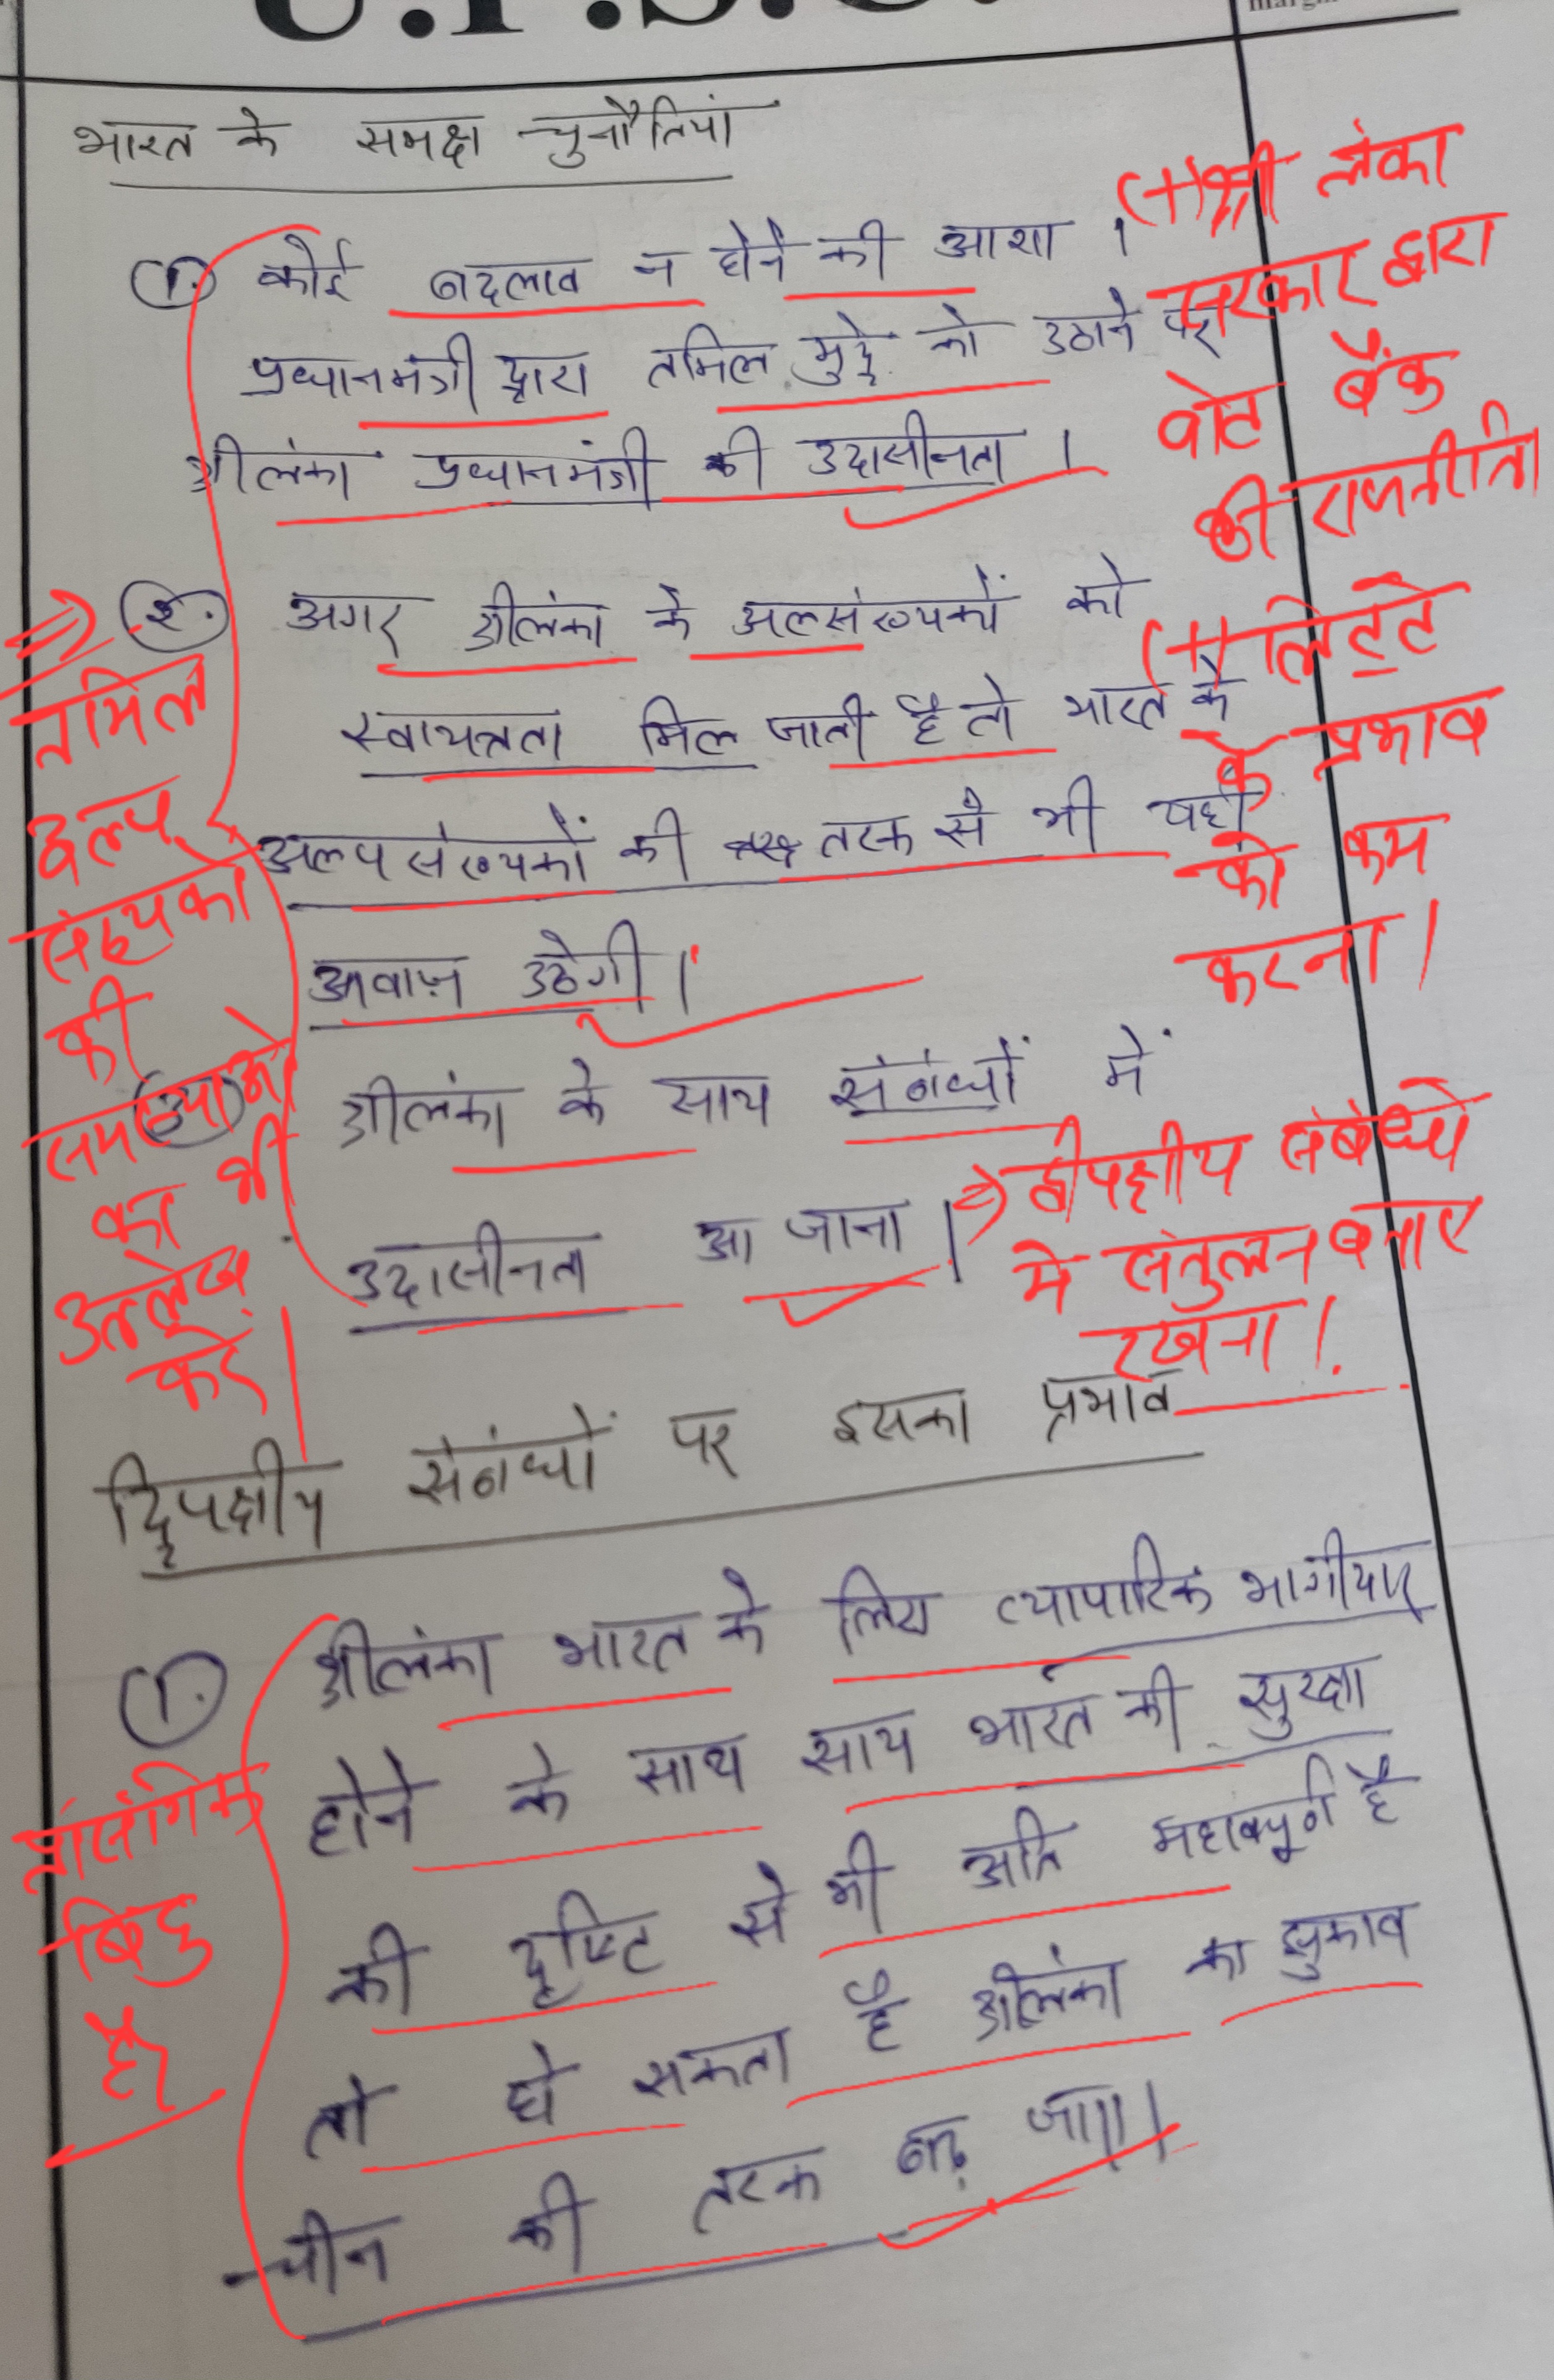 U.P.S.C.
भारत के समक्ष चुनौतियां
1. कोई बदलाव न होने की आशा ।
प्रधानमंत्री द्वारा तमिल मुद्दे को उठाने पर
श्रीलंका प्रधानमंत्री की उदासीनता ।
(+) श्री लंका
सरकार द्वारा
वोट बैंक
की राजनीति
2. अगर श्रीलंका के अल्पसंख्यकों को
स्वायत्तता मिल जाती है तो भारत के
अल्पसंख्यकों की तरफ से भी यही
आवाज़ उठेगी ।
(+) लिट्टे
के प्रभाव
को कम
करना ।
⇒ तमिल
अल्प
संख्यकों
की
समस्याओं
का भी
उल्लेख
करें ।
3 श्रीलंका के साथ संबंधों में
उदासीनता आ जाना ।
⇒ द्वीपक्षीय संबंधो
मे संतुलन बनाए
रखना ।
द्विपक्षीय संबंधों पर इसका प्रभाव
1. श्रीलंका भारत के लिए व्यापारिक भागीदार
होने के साथ साथ भारत की सुरक्षा
की दृष्टि से भी अति महत्वपूर्ण है
तो हो सकता है श्रीलंका का झुकाव
चीन की तरफ बढ़ जाए ।
प्रासंगिक
बिंदु
है